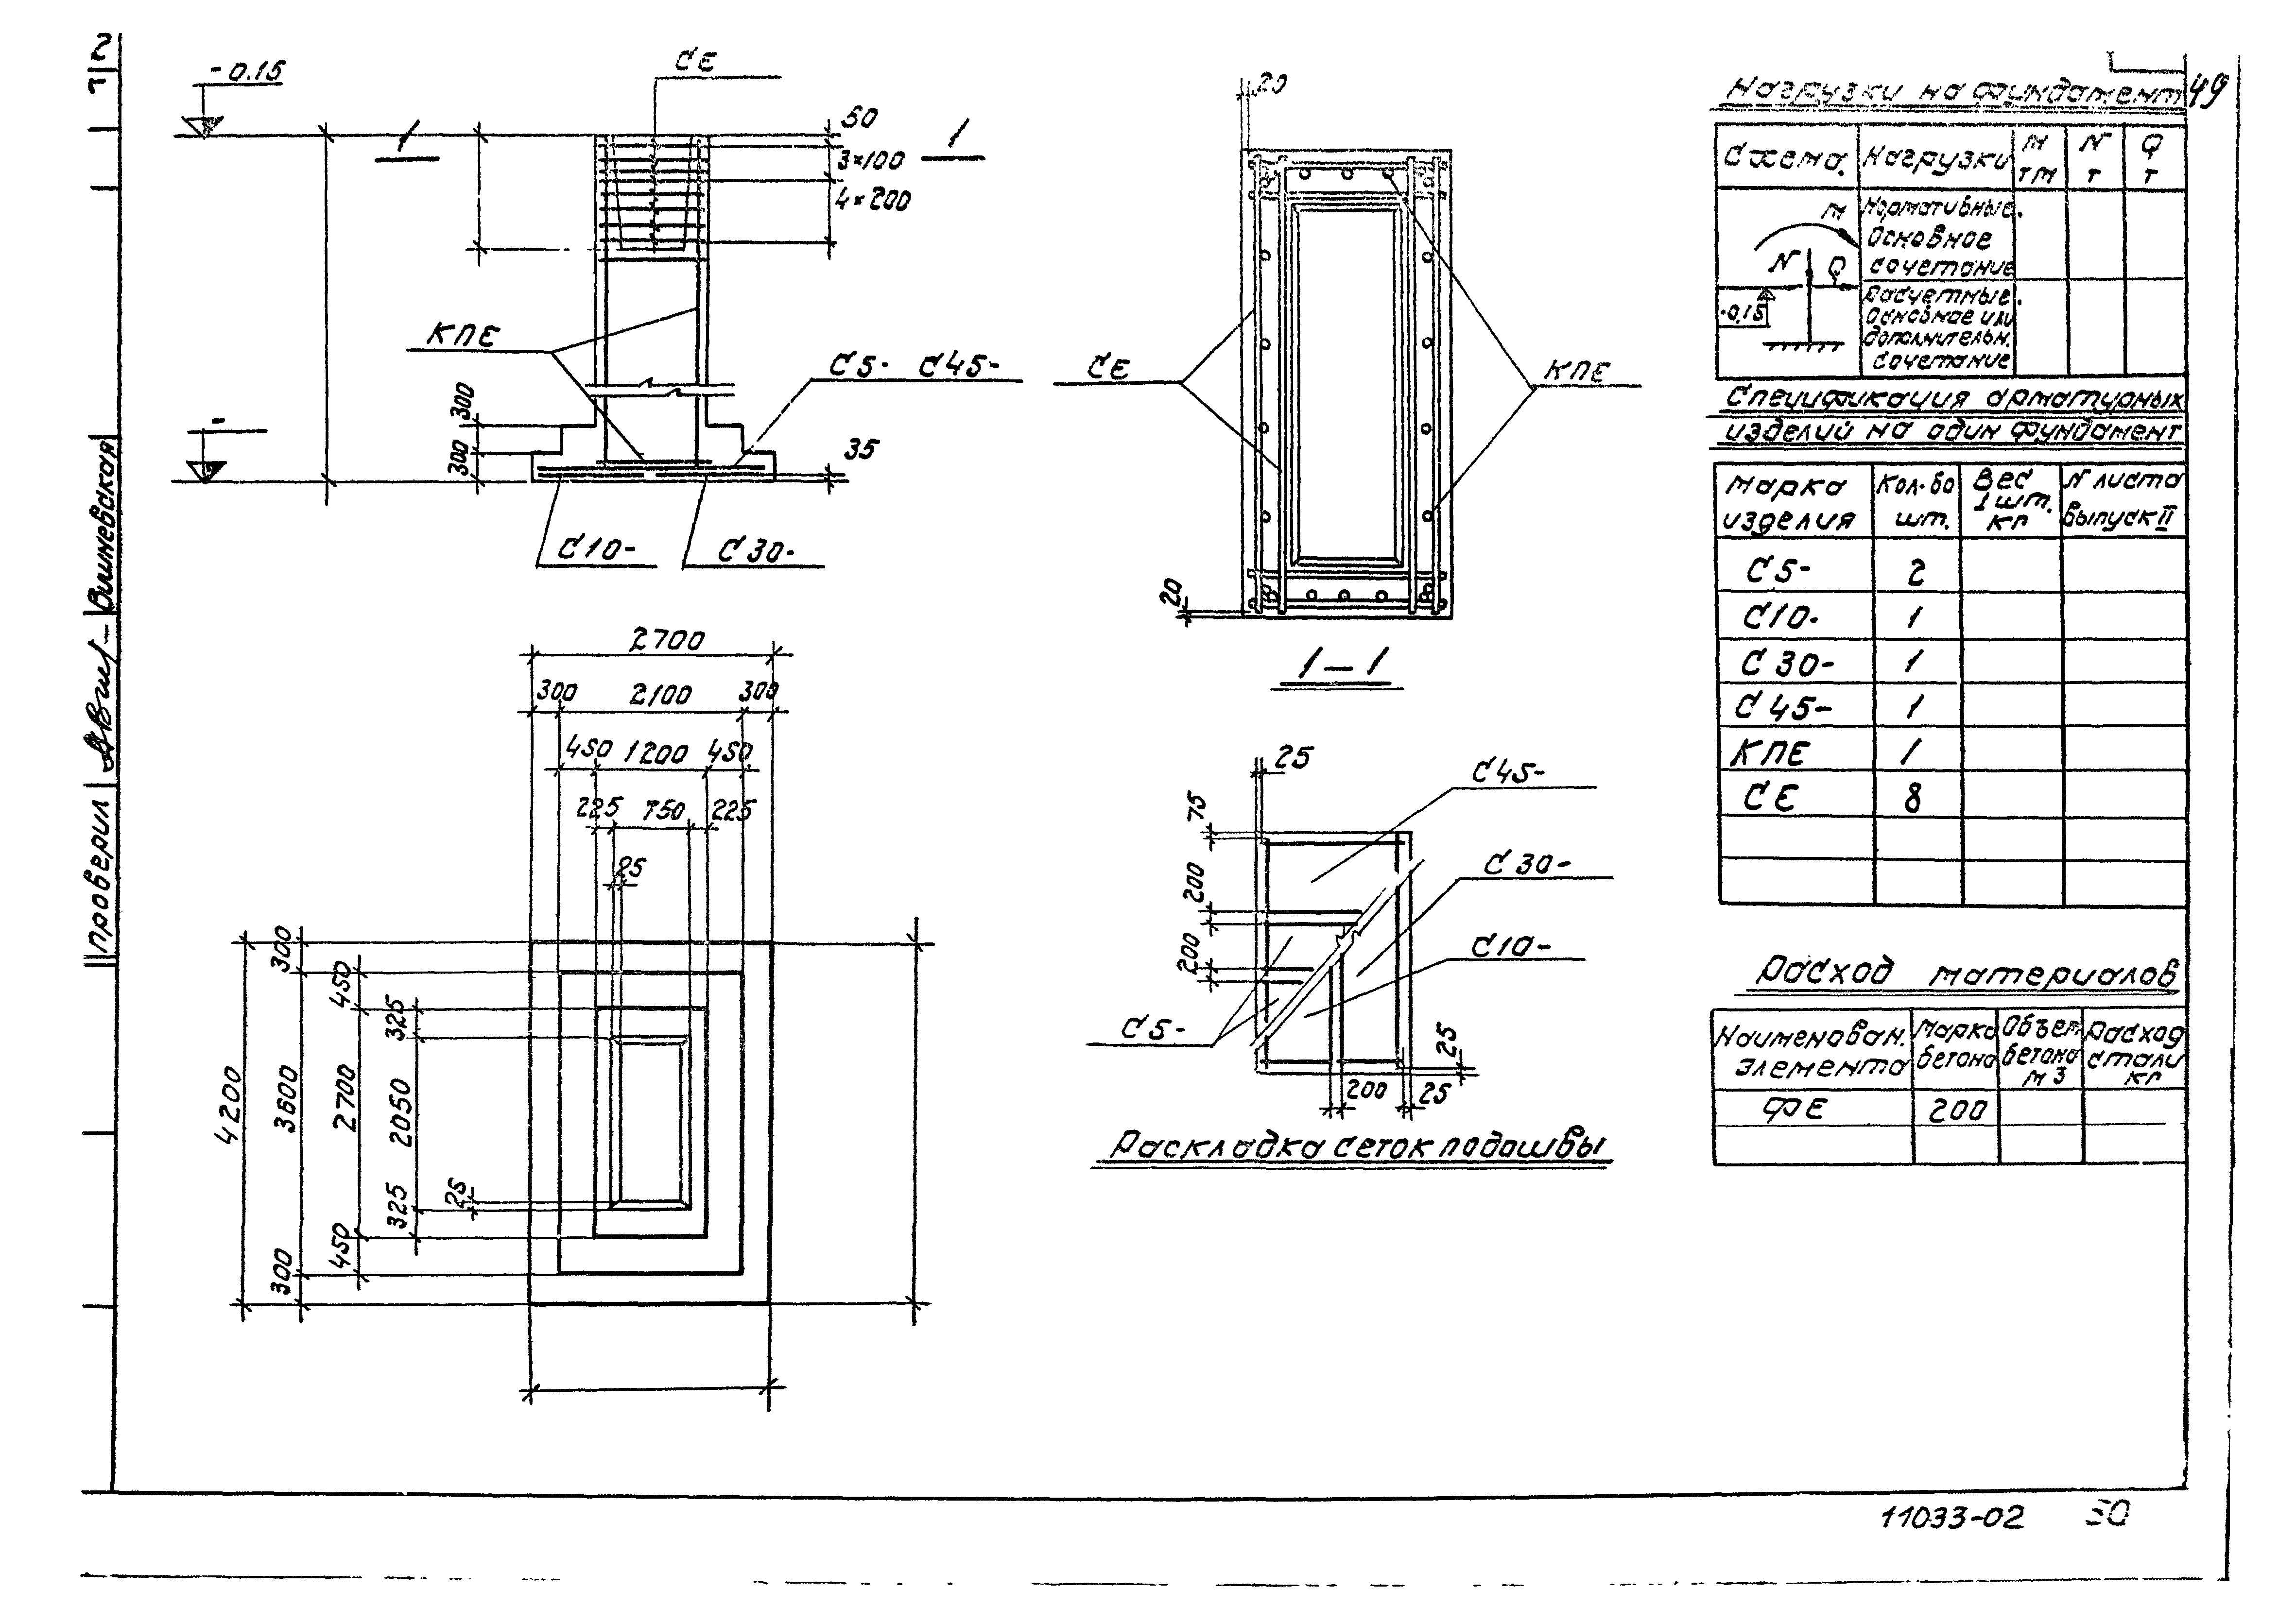 2
т
49
- 0.15
СЕ
50
3×100
4×200
1
1
КПЕ
С5- С45-
300
300
35
-
С10-
С30-
20
СЕ
КПЕ
20
1-1
2700
300 2100 300
450 1200 450
225 750 225
25
300
450
325
4200
3600
2700
2050
325
25
450
300
25
С45-
75
С30-
200
200
С10-
С5-
25
200
25
Раскладка сеток подошвы
Нагрузки на фундамент
Схема.
Нагрузки
М
тм
N
т
Q
т
М
N
Q
-0,15
Нормативные.
Основное
сочетание
Расчетные.
Основное или
дополнительн.
сочетание
Спецификация арматурных
изделий на один фундамент
Марка
изделия
Кол-во
шт.
Вес
1 шт.
кг
N листа
выпуск II
С5- 2
С10- 1
С30- 1
С45- 1
КПЕ 1
СЕ 8
Расход материалов
Наименован.
элемента
Марка
бетона
Объем
бетона
м3
Расход
стали
кг
ФЕ 200
проверил
Вишневская
11033-02 50